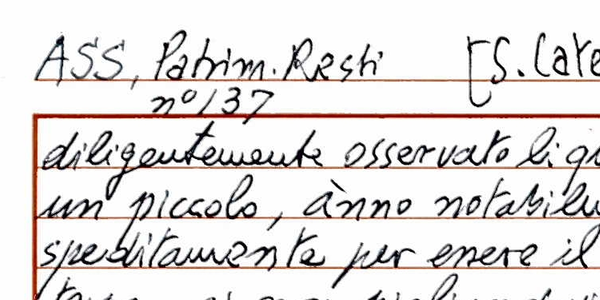 ASS, Patrim. Resti [S. Cate
n° 137
diligentemente osservato li qu
un piccolo, ànno notabilm
speditamente per essere il